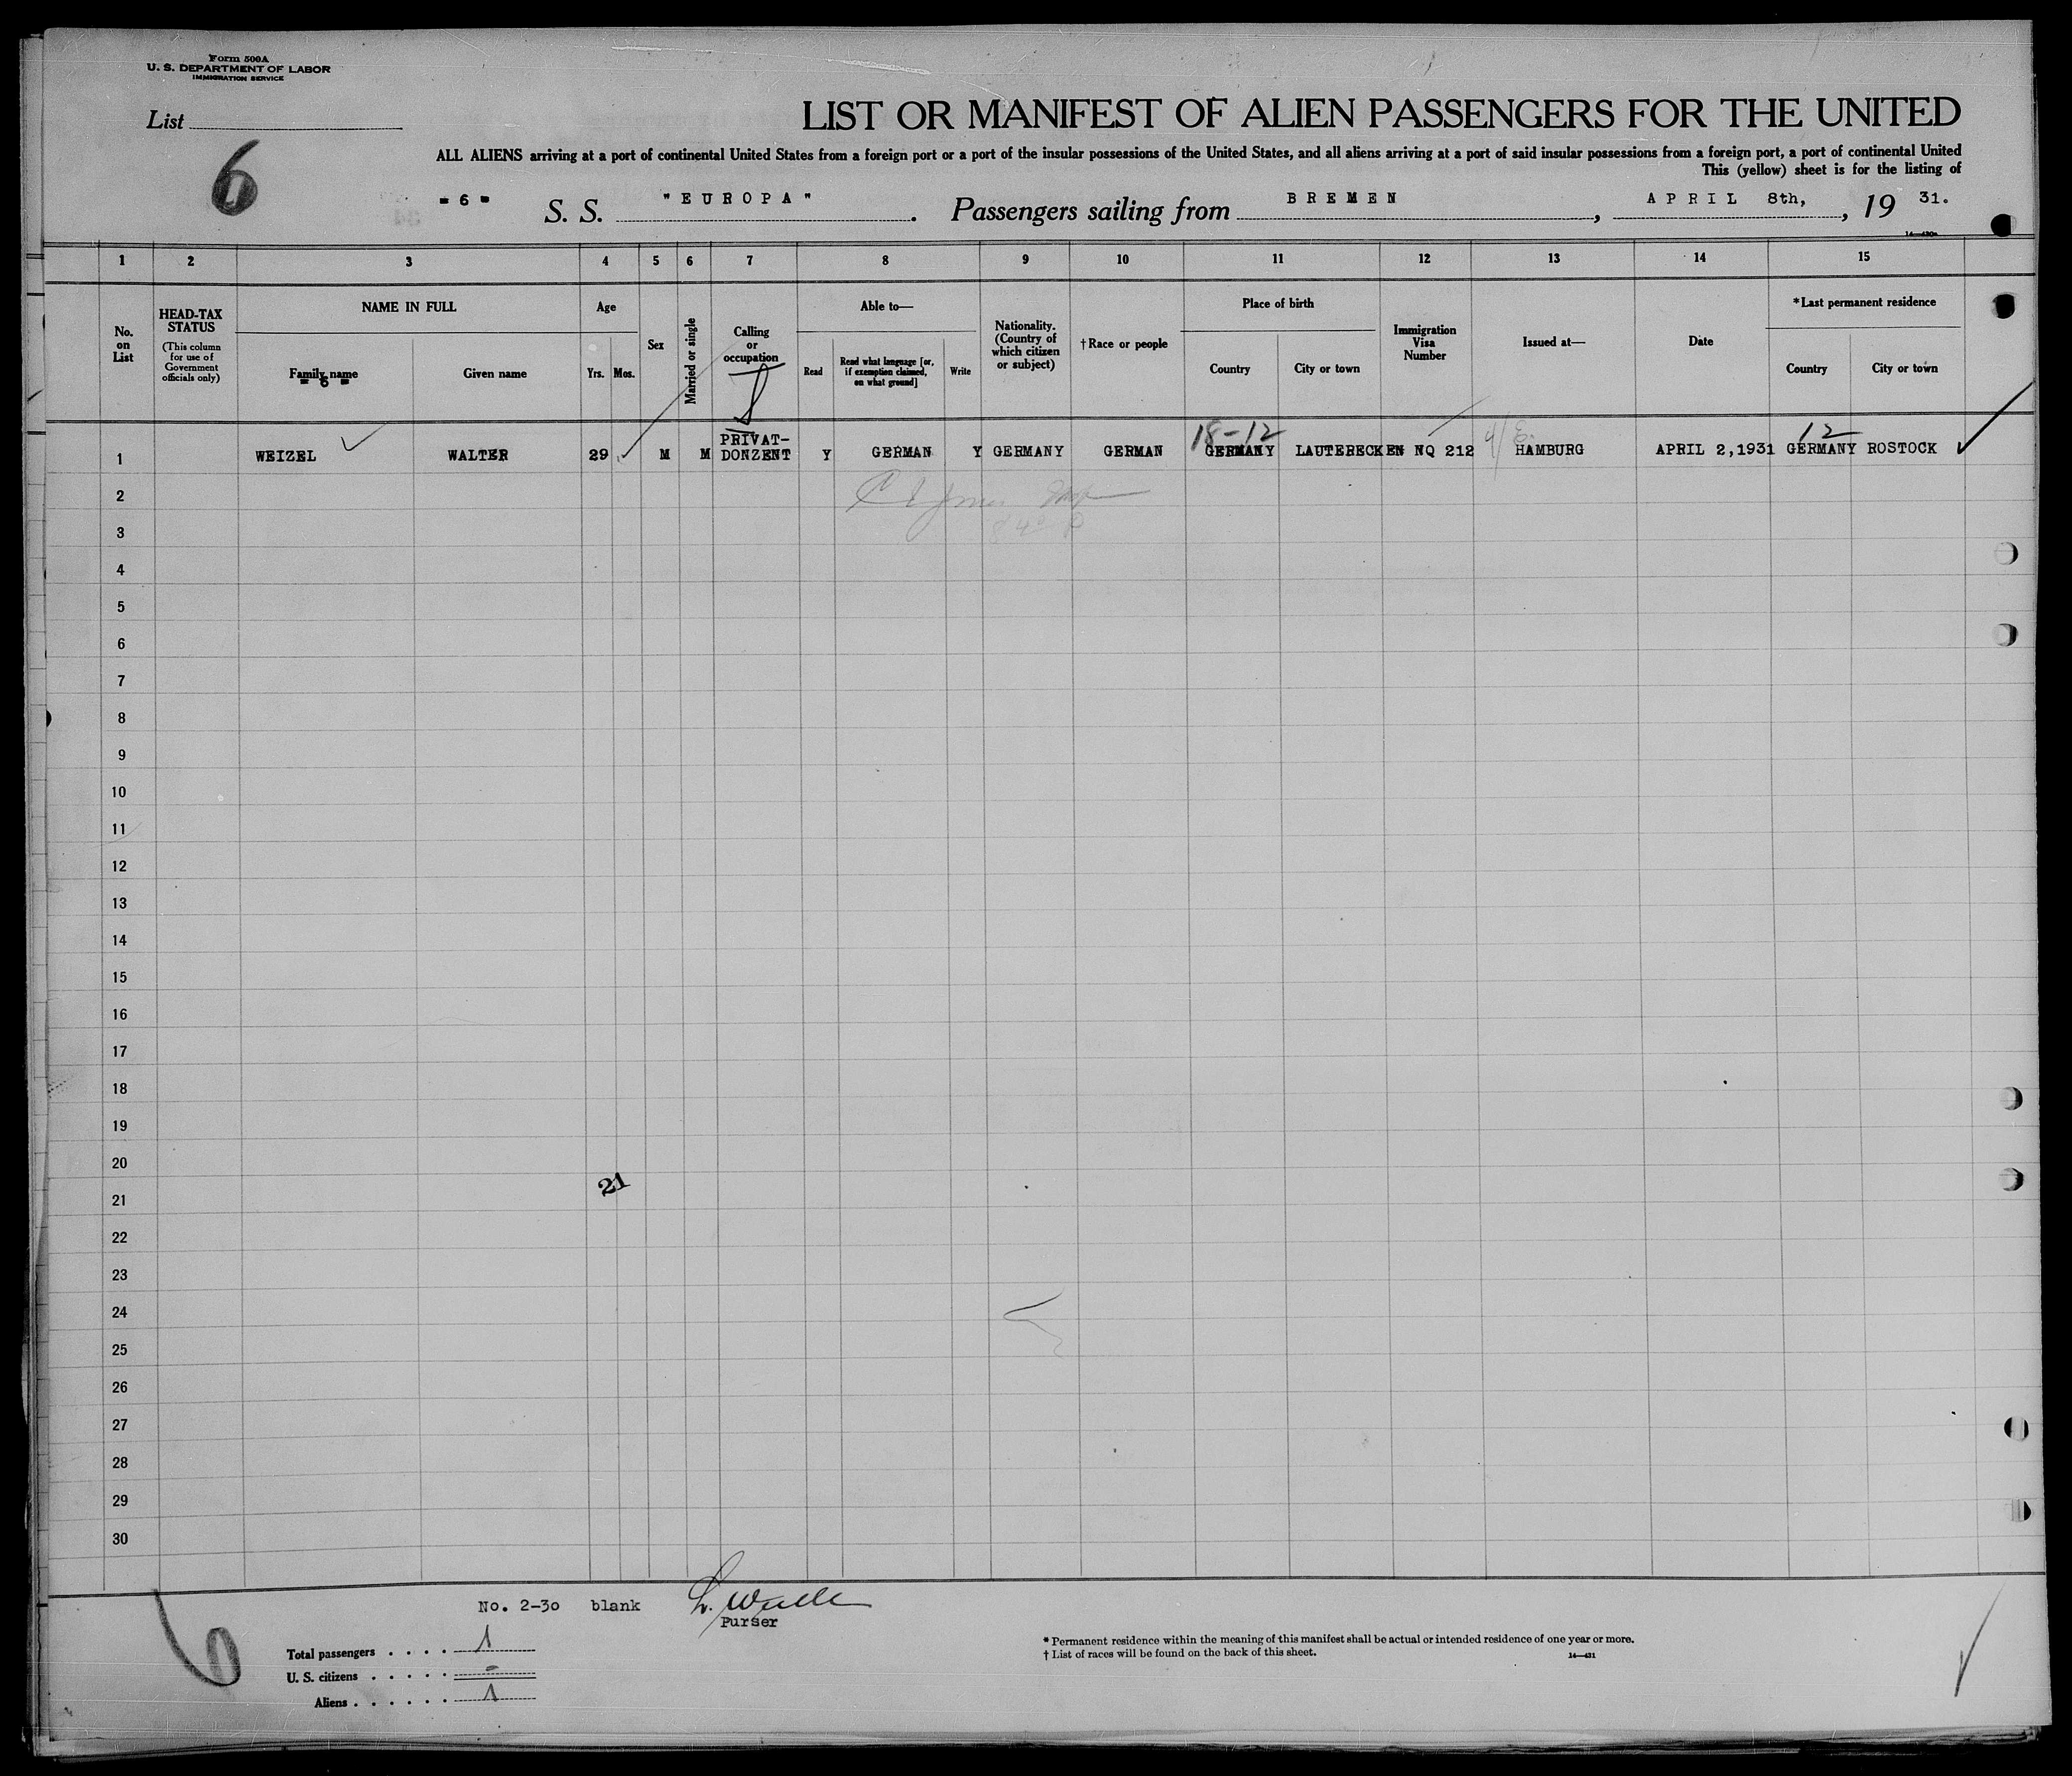 Form 500A
U. S. DEPARTMENT OF LABOR
IMMIGRATION SERVICE
List
6
LIST OR MANIFEST OF ALIEN PASSENGERS FOR THE UNITED
ALL ALIENS arriving at a port of continental United States from a foreign port or a port of the insular possessions of the United States, and all aliens arriving at a port of said insular possessions from a foreign port, a port of continental United
This (yellow) sheet is for the listing of
- 6 - S. S. "EUROPA". Passengers sailing from BREMEN, APRIL 8th, , 19 31.
1 2 3 4 5 6 7 8 9 10 11 12 13 14 15
No. on List
HEAD-TAX STATUS
(This column for use of Government officials only)
NAME IN FULL
Family name
- 6 -
Given name
Age
Yrs.
Mos.
Sex
Married or single
Calling or occupation
Able to—
Read
Read what language [or, if exemption claimed, on what ground]
Write
Nationality. (Country of which citizen or subject)
†Race or people
Place of birth
Country
City or town
Immigration Visa Number
Issued at—
Date
*Last permanent residence
Country
City or town
18-12 12
1 WEIZEL WALTER 29 M M PRIVAT-DONZENT Y GERMAN Y GERMANY GERMAN GERMANY LAUTERECKEN NQ 212 HAMBURG APRIL 2,1931 GERMANY ROSTOCK
2
3
4
5
6
7
8
9
10
11
12
13
14
15
16
17
18
19
20
21
21
22
23
24
25
26
27
28
29
30
No. 2-30 blank
Purser
6
Total passengers . . . . 1
U. S. citizens . . . . . -
Aliens . . . . . . 1
* Permanent residence within the meaning of this manifest shall be actual or intended residence of one year or more.
† List of races will be found on the back of this sheet.
14—431